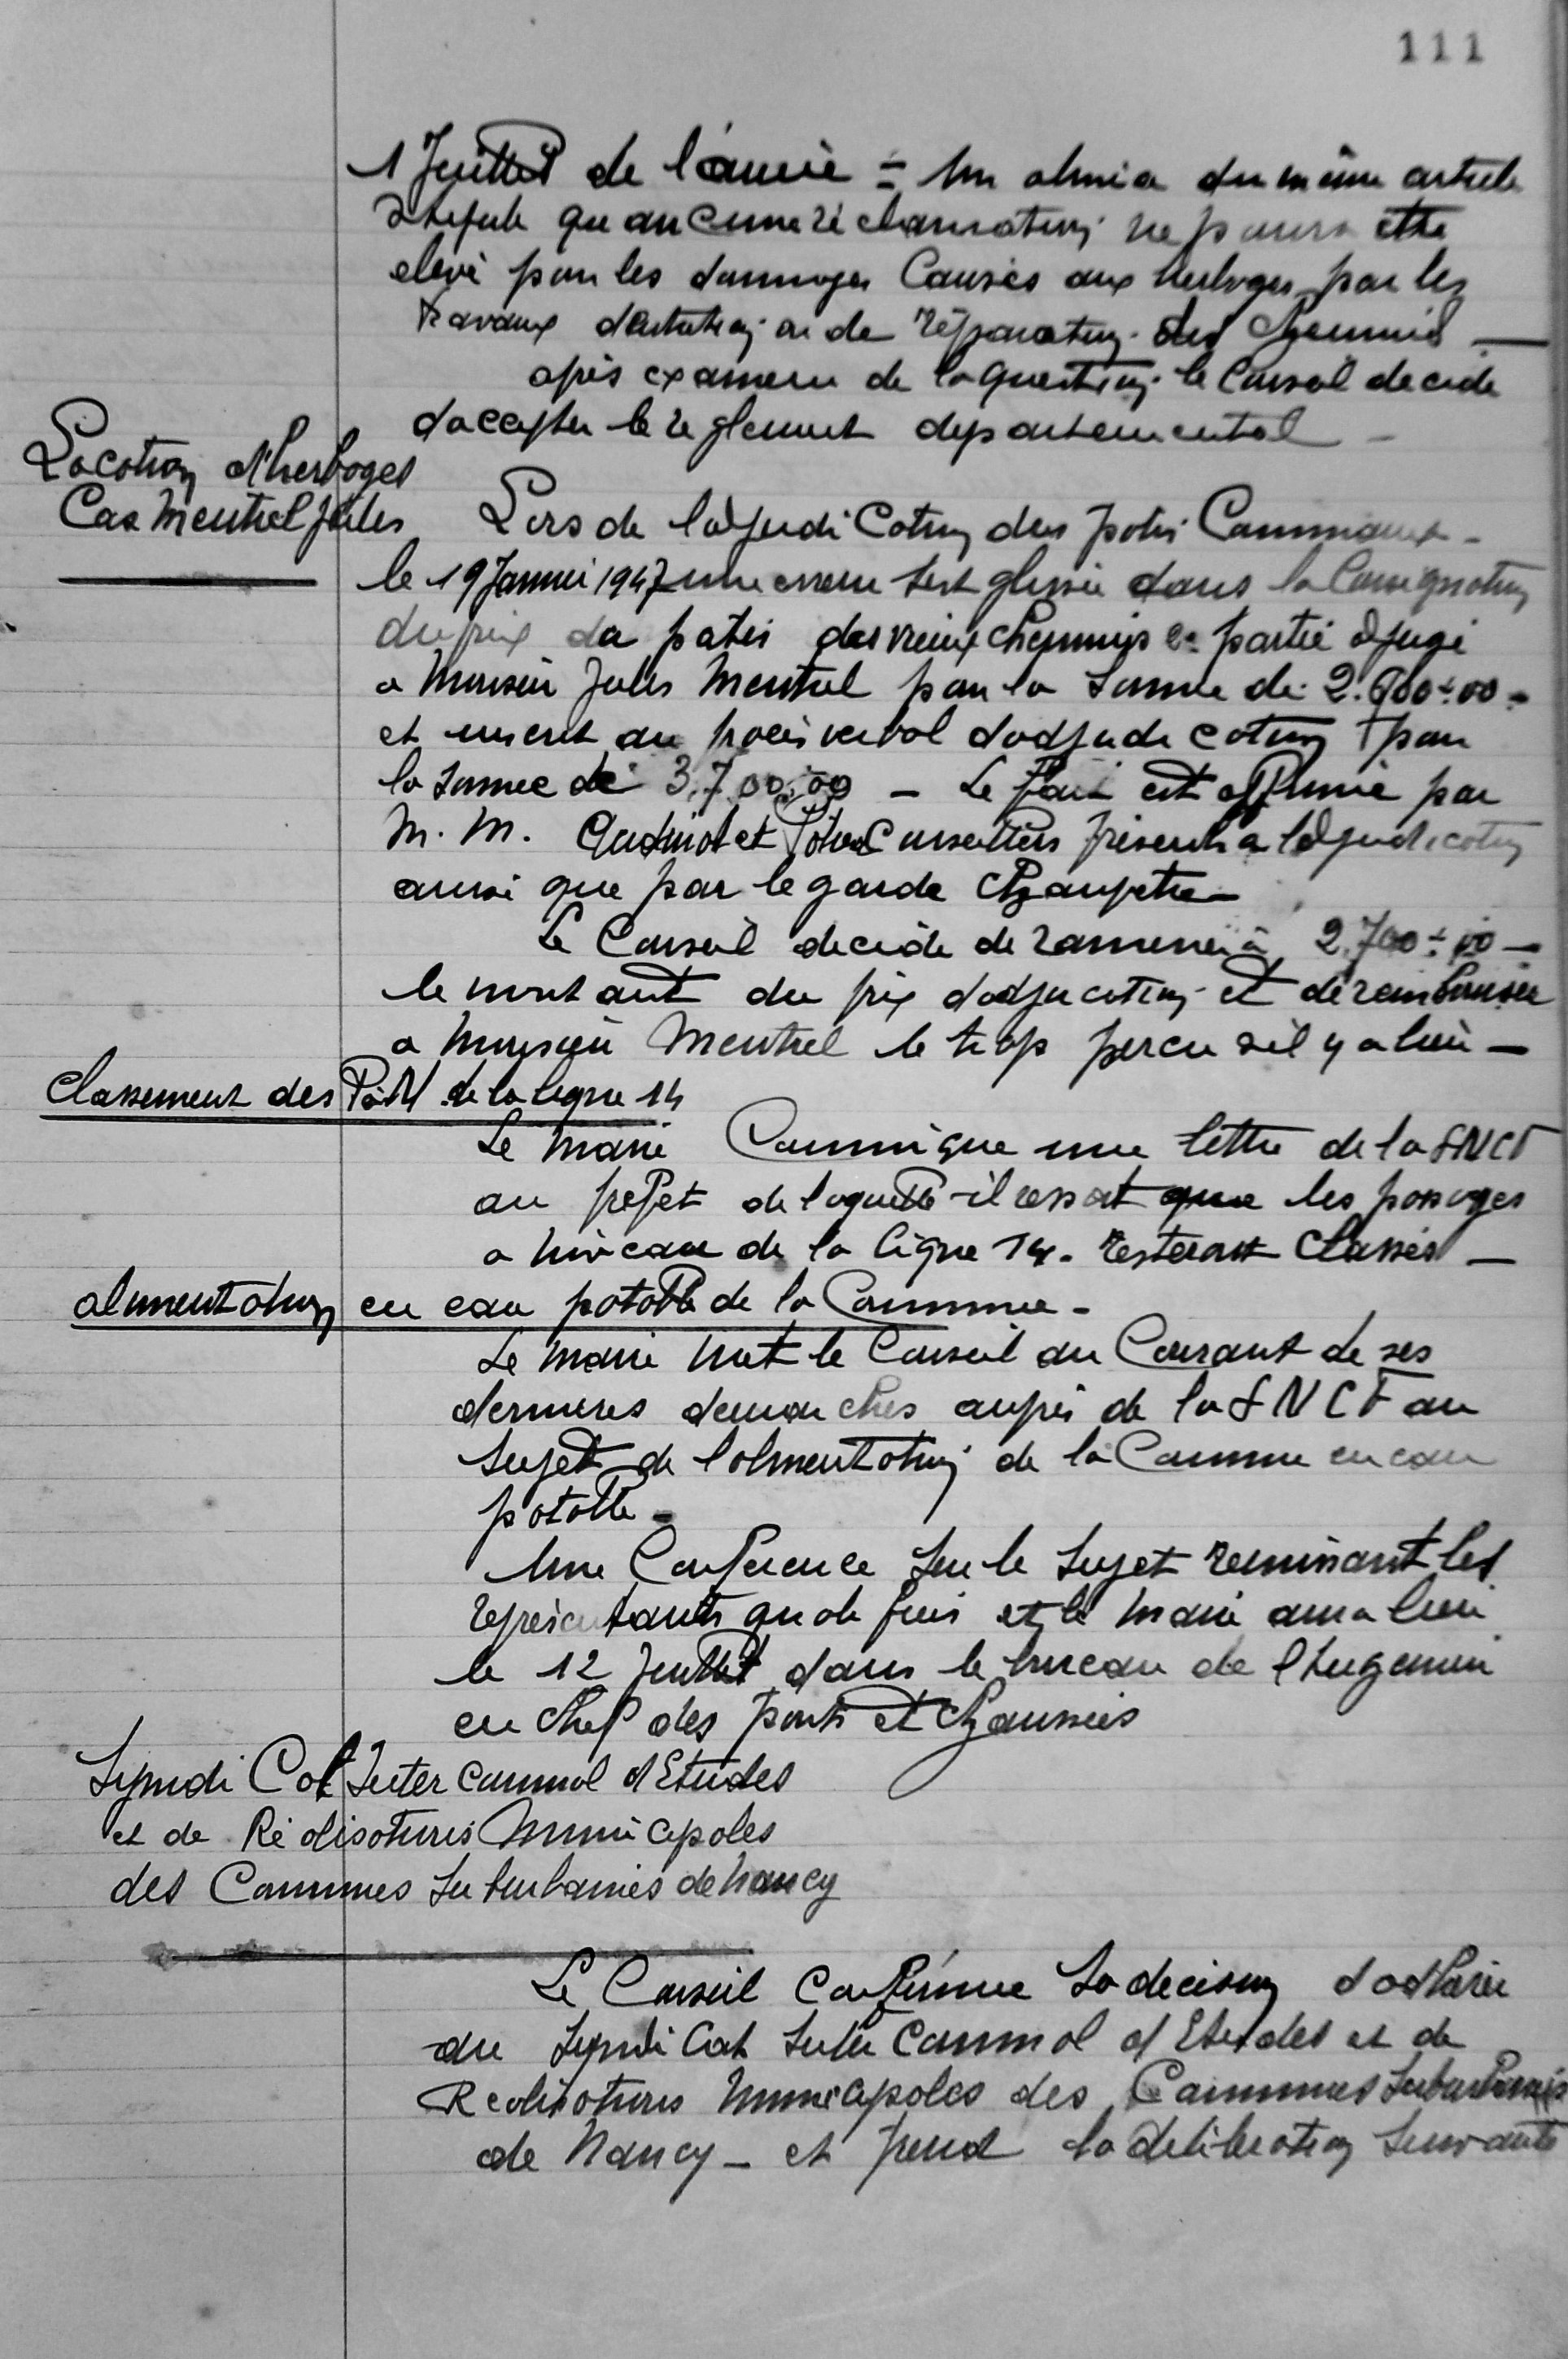 111
1 Juillet de l'année = Un alinéa du même article
stipule que aucune réclamation ne pourra etre
elevé pour les dommages Causés aux herbages par les
travaux d'entretien ou de réparation des Chemins —
après examen de la question le Conseil decide
d'accepter le reglement departemental —
Location d'herbages
Cas Mentrel Jules
Lors de l'adjudication des patis Communaux -
le 19 Janvier 1947 une erreur s'est glissée dans la Consignation
du prix du patis des vieux chemins 2e partie adjugé
a Monsieur Jules Mentrel pour la somme de 2.700=00 -
et inscrit au procès verbal d'adjudication pour
la somme de 3.700,00 — Le fait est affirmé par
M. M. et Conseillers présents a l'adjudication
ainsi que par le garde Champetre
Le Conseil decide de ramener à 2.700=00 —
le montant du prix d'adjucation et de rembourser
a Monsieur Mentrel le trop percu s'il y a lieu —
Classement des P.à.N de la ligne 14
Le Maire Communique une lettre de la SNCF
au prefet de laquelle il ressort que les passages
a niveau de la ligne 14. resteront classés —
alimentation en eau potable de la Commune -
Le Maire met le Conseil au Courant de ses
dernieres demarches auprès de la SNCF au
sujet de l'alimentation de la Commune en eau
potable -
Une Conference sur le sujet reunissant les
représentants et le Maire aura lieu
le 12 Juillet dans le bureau de l'Ingenieur
en chef des ponts et chaussées
Syndicat Intercommunal d'Etudes
et de Réalisations Municipales
des Communes Suburbaines de Nancy
Le Conseil Confirme sa decision d'adhérer
au Syndicat Intercommunal d'Etudes et de
Realisations Municipales des Communes Suburbaines
de Nancy — et prend la deliberation suivante